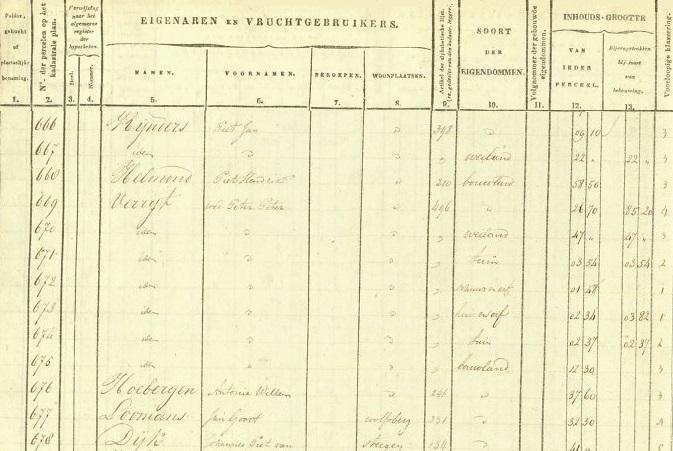 Polder, gehucht of plaatselijke benaming. Nº. der perceelen op het kadastrale plan. Verwijzing naar het algemeene register der hypotheken. EIGENAREN EN VRUCHTGEBRUIKERS. Artikel der alphabetische lijst. SOORT DER EIGENDOMMEN. Volgnommer der gebouwde eigendommen. INHOUDS-GROOTTE Voorloopige klassering.
Deel. Nommer. NAMEN. VOORNAMEN. BEROEPEN. WOONPLAATSEN. VAN IEDER PERCEEL.
1. 2. 3. 4. 5. 6. 7. 8. 9. 10. 11. 12. 13.
666 Piet Jan 398 09 10 3
667 idem weiland 22 " 22 " 3
668 Helmond Piet Hendrik 210 bouwland 58 50 3
669 Verryt Peter Peter 496 26 70 85 20 4
670 idem weiland 47 " 47 " 3
671 idem tuin 03 54 03 54 2
672 idem 01 48 1
673 idem huis en erf 02 34 03 82 1
674 idem tuin 02 37 02 37 2
675 idem bouwland 12 30 3
676 Hoebergen Antonie Willem 246 37 60 3
677 Loomans Jan Govert wolfsberg 331 32 30
678 Dijk Johannes Piet van steegen 134 41